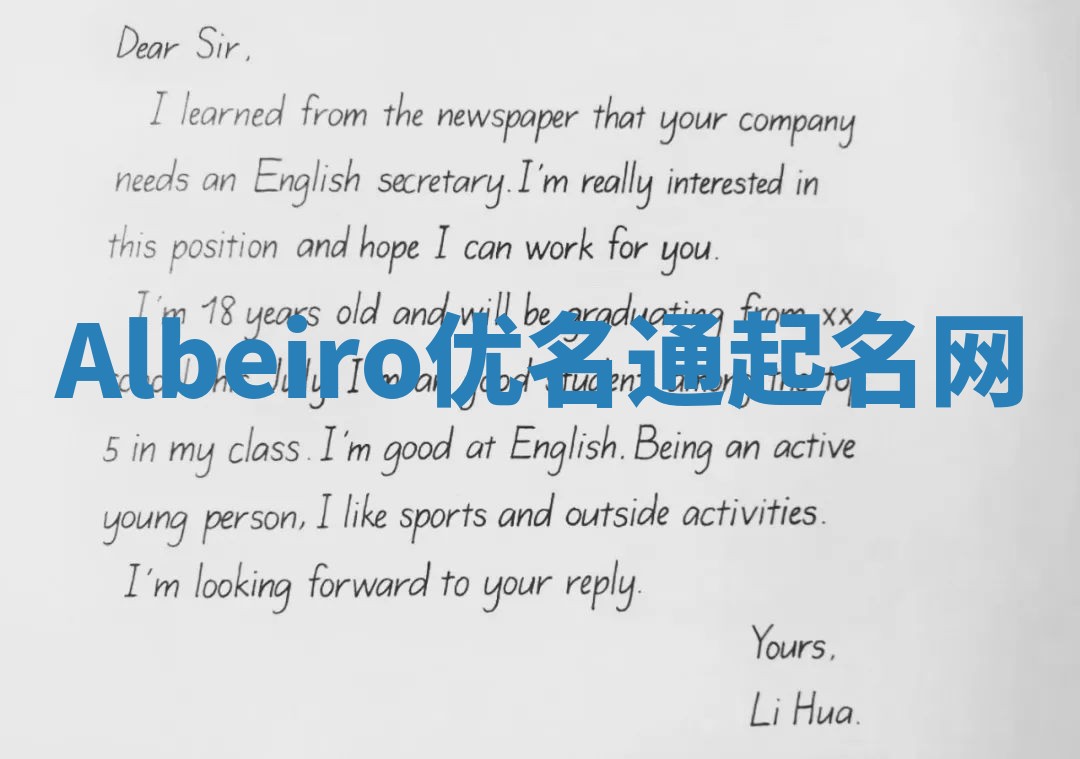 Dear Sir,
I learned from the newspaper that your company
needs an English secretary. I'm really interested in
this position and hope I can work for you.
I'm 18 years old and will be graduating from xx
Albeiro优名通起名网
school this July. I'm a good student among the top
5 in my class. I'm good at English. Being an active
young person, I like sports and outside activities.
I'm looking forward to your reply.
Yours,
Li Hua.